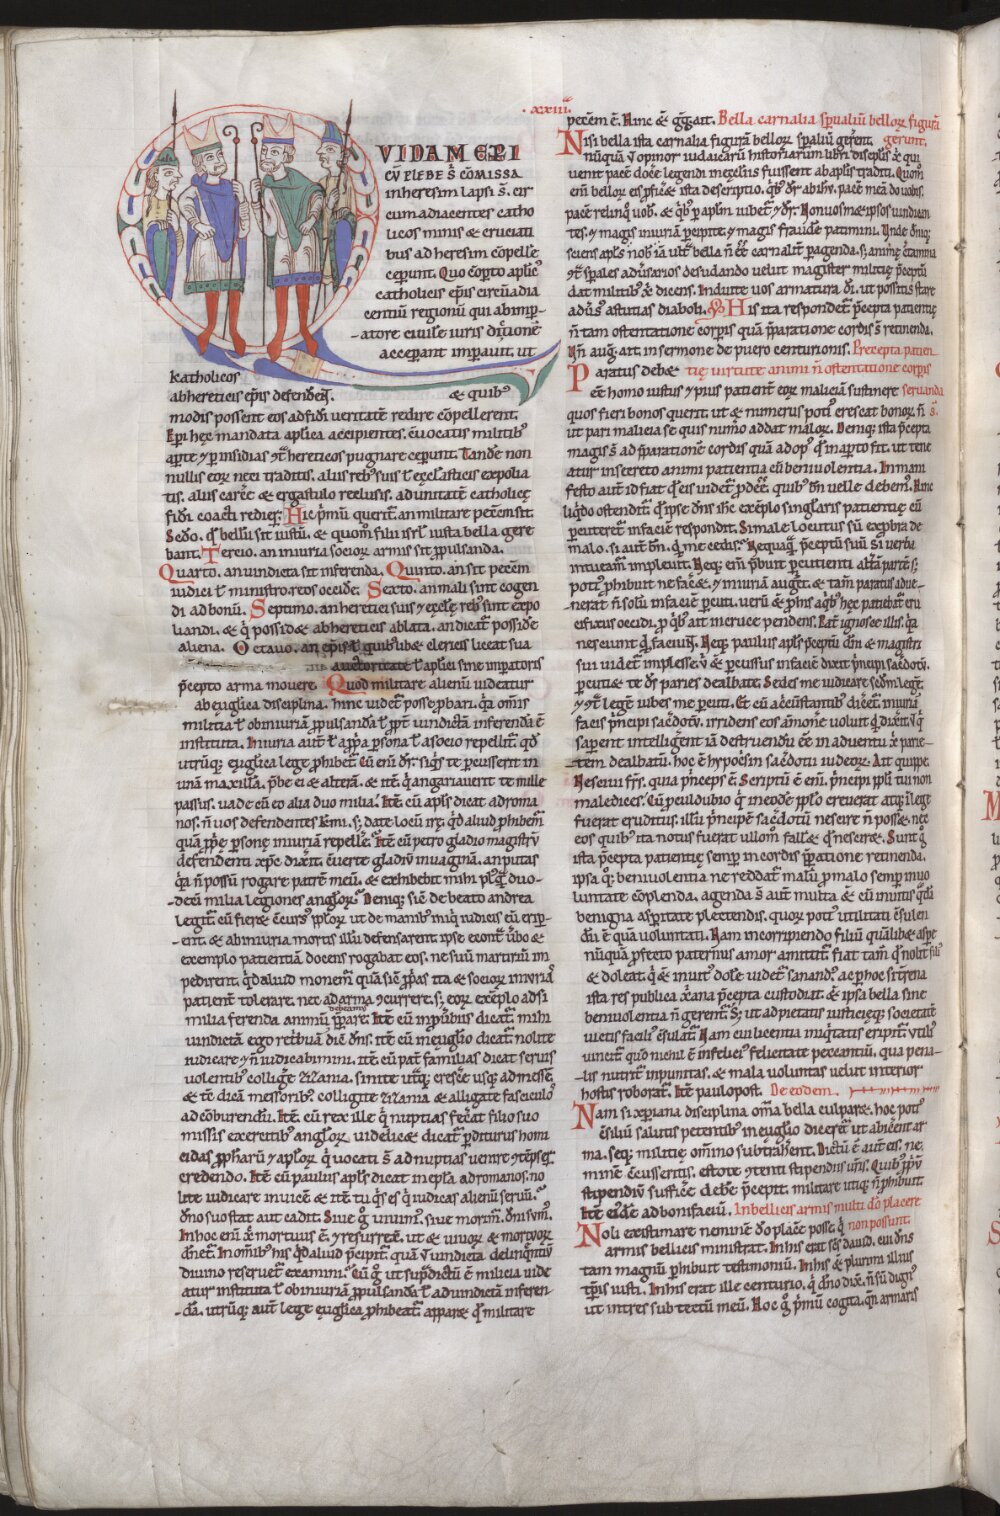 .xxiii.
QVIDAM EPI
CV̄ PLEBE S̄ CŌMISSA
inheresim lapsi s̄. cir
cumadiacentes catho
licos minis & cruciati
bus ad heresim cōpelle
ceperunt. Quo cōꝑto aplic᷒
catholicis ep̄is circūadia
centiū regionū qui abimp̄
atore ciuile iuris dictionē
acceperant imperauit. ut
katholicos
abhereticis ep̄is defenderēt. & quib᷒
modis possent eos ad fidei ueritatē redire cōpellerent.
Ep̄i hęc mandata aplica accipientes. cūuocatis militib᷒
aꝑte & ꝑ insidias ↄt̄ hereticos pugnare ceperunt. Tandē non
nullis eoꝝ neci traditis. aliis reb᷒ suis ł ęcclasticis expolia
tis. aliis carcē & ergastulo reclusis. ad unitatē catholicę
fidei coacti redieꝝ. Hic pͥmū querit̄. an militare peccm̄ sit.
Scd̄o. qd̄ bellū sit iustū. & quom̄ filii isrł iusta bella gere
bant. Tercio. an iniuria socioꝝ armis sit ꝓpulsanda.
Quarto. an uindicta sit inferenda. Quinto. an sit peccm̄
iudici ł ministro reos occidē. Sexto. an mali sint cogen
di ad bonū. Septimo. an heretici suis & ęcclę reb᷒ sint expo
liandi. & qͥ possid& abhereticis ablata. an dicat̄ possidē
aliena. Octauo. an ep̄is ł quibuslib& clericis liceat sua
auctoritate ł aplici siue imp̄atoris
p̄cepto arma mouere. Quod militare alienū uideatur
ab euḡlica disciplina. hinc uidet̄ posse ꝓbari. qͥa om̄is
militia ł ob iniuriā ꝓpulsandā ł ꝓpt̄ uindictā inferendā ē
instituta. Iniuria aut̄ ł a ꝓpͥa persona ł a socio repellit̄. qd̄
utrūq; euḡlica lege ꝓhibet̄. Cū eni͞ dr̄. siqͥs te ꝑcusserit in
unā maxillā. p̄be ei & alterā. & itē. qͥ angariauerit te mille
passus. uade cū eo alia duo milia. Itē cū apłs dicat ad roma
nos. n̄ uos defendentes km̄i. s; date locū irę. qd̄ aliud ꝓhibem̄
quā ꝓpͥę psonę iniuriā repellē. Itē cū petro gladio magistrū
defendenti xp̄c dixit. cūuerte gladiū in uaginā. an putas
qͥa n̄ possū rogare patrē meū. & exhibebit mihi pl᷒ quā duo
decī milia legiones angłoꝝ. Deniq; sic̄ de beato andrea
legit̄. cū fier& cōcurs᷒ pploꝝ ut de manib᷒ iniqͥ iudicis eū erip
ent. & ab iniuria mortis illū defensarent. ipse ecōnt̄ uerbo &
exemplo patientiā docens rogabat eos. ne suū martiriū im
pedirent. qd̄ aliud monem̄ quā sic̄ ꝓpͥas ita & socioꝝ iniuriā
patient̄ tolerare. nec ad arma ↄcurrere. s; eoꝝ exēplo ad si
milia ferenda animū p̄parare. Itē cū in puerbiis dicat̄. mihi
debeamus
uindictā ego retbuā dic̄ dn̄s. itē cū in euḡlio dicat̄ nolite
iudicare & n̄ iudicabimini. itē cū pat̄ familias dicat seruis
uolentib᷒ collige zizania. sinite utraq; crescē usq; ad messē
& tc̄ dicā messorib᷒. colligite zizania & alligate fasciculos
ad cōburendū. Itē cū rex ille qͥ nuptias fecerat filio suo
missis exercitib᷒ angłoꝝ. uidelic& dicat̄ ꝑditurus homi
cidas ꝓph&arū & aploꝝ. qͥ uocati s̄ ad nuptias uenire ↄtēpseꝝ
credendo. Itē cū paulus apłs dicat in epla ad romanos. no
lite iudicare inuicē & itē tu qͥs es qͥ iudicas alienū seruū.
dn̄o suo stat aut cadit. Siue g̊ uiuim᷒. siue morim̄. dn̄i sum᷒.
In hoc eni͞ xp̄c mortuus ē. & resurrexit. ut & uiuoꝝ & mortuoꝝ
dn̄et̄. In om̄ib᷒ his qd̄ aliud p̄cipit̄. quā ut uindicta delinqͥntiū
diuino reseruet̄ examini. Cū g̊ ut sup̄ dictū ē milicia uide
atur instituta ł ob iniuriā ꝓpulsandā ł ad uindictā inferen
dā. utrūq; aut̄ lege euḡlica ꝓhibeat̄. appar& qd̄ militare
peccm̄ ē. Hinc & gg̅. ait. Bella carnalia sp̄ualiū belloꝝ figurā
Nisi bella ista carnalia figurā belloꝝ sp̄aliū gererent. gerunt.
nūquā ut opinor iudaicarū historiarum libri discplis xp̄i qui
uenit pacē docē legendi in ęcclīs fuissent ab aplis traditi. Quom̄
eni͞ belloꝝ eis ꝓficē ista descriptio. qͥb᷒ dr̄ ab ihū. pacē meā do uobis.
pacē relinqͦ uob̄. & qͥb᷒ ꝑ aplm̄ iubet̄ & dr̄. Non uosmetipsos uindican
tes. & magis iniuriā ꝑcipite. & magis fraudē patimini. Unde deniq;
sciens apłs nob̄ iā ultra bella n̄ cē̄ carnalit̄ peragenda. s; animę ctamina
ↄt̄ sp̄ales adūsarios desudando uelut magister militię p̄ceptū
dat militib᷒ xp̄i dicens. Induite uos armatura di͞. ut possitis stare
adūs᷒ astutias diaboli. Sol̄. His ita respondet̄ p̄cepta patientię
n̄ tam ostentatione corpis quā p̄paratione cordis s̄ retinenda.
Un̄ aug̅. ait. in sermone de puero centurionis. Precepta patien
Paratus debe& tię uirtute animi n̄ ostentatione corpis
cē̄ homo iustus & pius patient̄ eoꝝ maliciā sustinere seruanda
quos fieri bonos querit. ut & numerus poti᷒ crescat bonoꝝ. n̄ s̄.
ut pari malicia se quis num̄o addat maloꝝ. Deniq; ista p̄cepta
magis s̄ ad p̄parationē cordis quā ad op᷒ qd̄ in aperto fit. ut tene
atur in secreto animi patientia cū beniuolentia. In mani
festo aut̄ id fiat qd̄ eis uidet̄ ꝓdeē̄. quib᷒ bn̄ uelle debem᷒. Hinc
liqͥdo ostendit̄ qd̄ ipse dn̄s ihc̄ exēplo singłaris patientię cū
ꝑcuteret̄ in faciē respondit. Si male locutus sū exproba de
malo. si aut̄ bn̄. qͥd me cedis. Nequaq̄ p̄ceptū suū si uerba
intueam̄ impleuit. Neq; eni͞ p̄buit ꝑcutienti altā partē. s;
poti᷒ ꝓhibuit ne fac&. & iniuriā auger&. & tam̄ paratus adue
nerat n̄ solū in faciē ꝑcuti. uerū & ꝓ his a qͥb᷒ hęc patiebat̄ cru
cifixus occidi. ꝓ qͥb᷒ ait in cruce pendens. Pat̄ ignosce illis. qͥa
nesciunt qͥd faciunt. Neq; paulus apłs p̄ceptū dn̄i & magistri
sui uidet̄ implesse. ubi & ꝑcussus in faciē dixit pͥncipi sacd̄otū.
ꝑcutiet te ds̄ paries dealbate. Sedes me iudicare scdm̄ legē.
& ↄt̄ legē iubes me ꝑcuti. Et cū a circūstantib᷒ dicer&. iniuriā
facis pͥncipi sacd̄otū. irridens eos āmonē uoluit qͥd dixit. ut qͥ
saperent intelligerent iā destruendū cē̄ in aduentu xp̄i parie
tem dealbatū. hoc ē hypocrisin sacd̄otū iudeoꝝ. Ait quippe.
Nesciui fr̄s. quia pͥnceps ē. Scriptū ē eni͞. pͥncipi ppli tui non
maledices. Cū ꝑculdubio qͥ in eodē pplo creuerat atq; ī lege
fuerat eruditus. illū pͥncipē sacd̄otū nescire n̄ posse. nec
eos quib᷒ ita notus fuerat ullom̄ fall& qd̄ nescire. Sunt g̊
ista p̄cepta patientię semp̄ in cordis p̄paratione retinenda.
ipsa q; beniuolentia ne reddat̄ malū ꝓ malo semp̄ in uo
luntate cōplenda. agenda s̄ aut̄ multa & cū inuitis qͣdā
benigna aspitate plectendis. quoꝝ poti᷒ utilitati cōsulen
dū ē quā uoluntati. Nam in corripiendo filiū quālib& aspe
nūquā ꝓfecto paternus amor amittit̄. fiat tam̄ qd̄ nolit fili᷒
& doleat. qͥ & inuit᷒ dolore uidet̄ sanandus. ac ꝑhoc si trena
ista res publica xp̄ana p̄cepta custodiat. & ipsa bella sine
beniuolentia n̄ gerent̄. s; ut ad pietatis iusticięq; societatē
uictis facili᷒ cōsulat̄. Nam cui licentia iniqͥtatis eripit̄. utilit̄
uincit̄. quō nichil ē infelici᷒ felicitate peccantiū. qua pena
lis nutrit̄ inpunitas. & mala uoluntas uelut interior
hostis roborat̄. Itē paulo post. De eodem.
Nam si xp̄iana disciplina om̄ia bella culpare. hoc poti᷒
cōsiliū salutis petentib᷒ in euḡlio diceret̄ ut abicerent ar
ma. seq; militię omnino subtraherent. Dictū ē aut̄ eis. ne
minē cūcusseritis. estote ↄtenti stipendiis uris. Quib᷒ ꝓpͥū
stipendiū sufficē debē p̄cepit. militare utiq; n̄ ꝓhibuit.
Itē eid̄e ad bonifaciū. In bellicis armis multi dō placere
Noli existimare neminē dō placē posse. qͥ non possunt.
armis bellicis ministrat. In his erat sc̄s dauid. cui dn̄s
tam magnū ꝑhibuit testimoniū. In his & plurimi illius
tp̄ris iusti. In his erat ille centurio. qͥ dn̄o dix. n̄ sū dign᷒
ut intres sub tectū meū. Hoc g̊ pͥmū cogita. qn̄ armaris